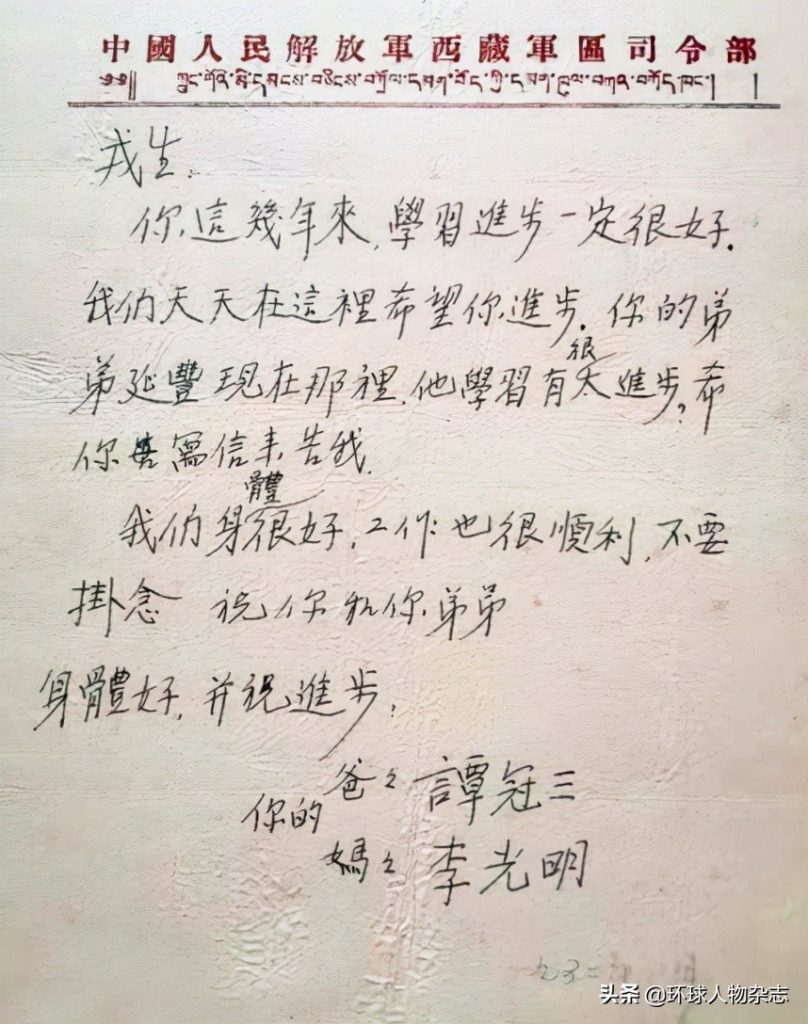 中國人民解放軍西藏軍區司令部
༄༅།། ཀྲུང་གོའི་མི་དམངས་བཅིངས་བཀྲོལ་དམག་བོད་ཀྱི་དམག་ཁུལ་བཀའ་བཀོད་ཁང་། །
戎生.
你這幾年來,學習進步一定很好.
我们天天在這裡希望你進步.你的弟
弟延豐現在那裡.他學習有很大進步?希
你寫信来告我.
我们身體很好,工作也很順利,不要
掛念 祝你和你弟弟
身體好,并祝進步.
爸々 譚冠三
你的
媽々 李光明
头条 @环球人物杂志